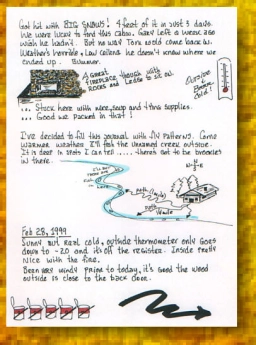 Got hit with BIG SNOWS! 9 feet of it in just 3 days.
We were lucky to find this cabin. Gary left a week ago
wish he hadn't. But no way Tom would come back in.
Weather's horrible, Low ceiling he doesn't know where we
ended up. Bummer.
A great
fireplace, though with
ROCKS and Ledge to sit on.
Brrrrr
Cold!
... Stuck here with more snow and thin supplies.
... Good we packed in that!
I've decided to fill this journal with fly patterns. Come
warmer weather I'll fish the unnamed creek outside.
It is deep in spots I can tell .... there's got to be brookies
in there.
N
W E
S
path
path
White
Feb 28, 1999
Sunny but real cold, outside thermometer only goes
down to -20 and it's off the register. Inside pretty
nice with the fire.
Been very windy prior to today, it's good the wood
outside is close to the back door.